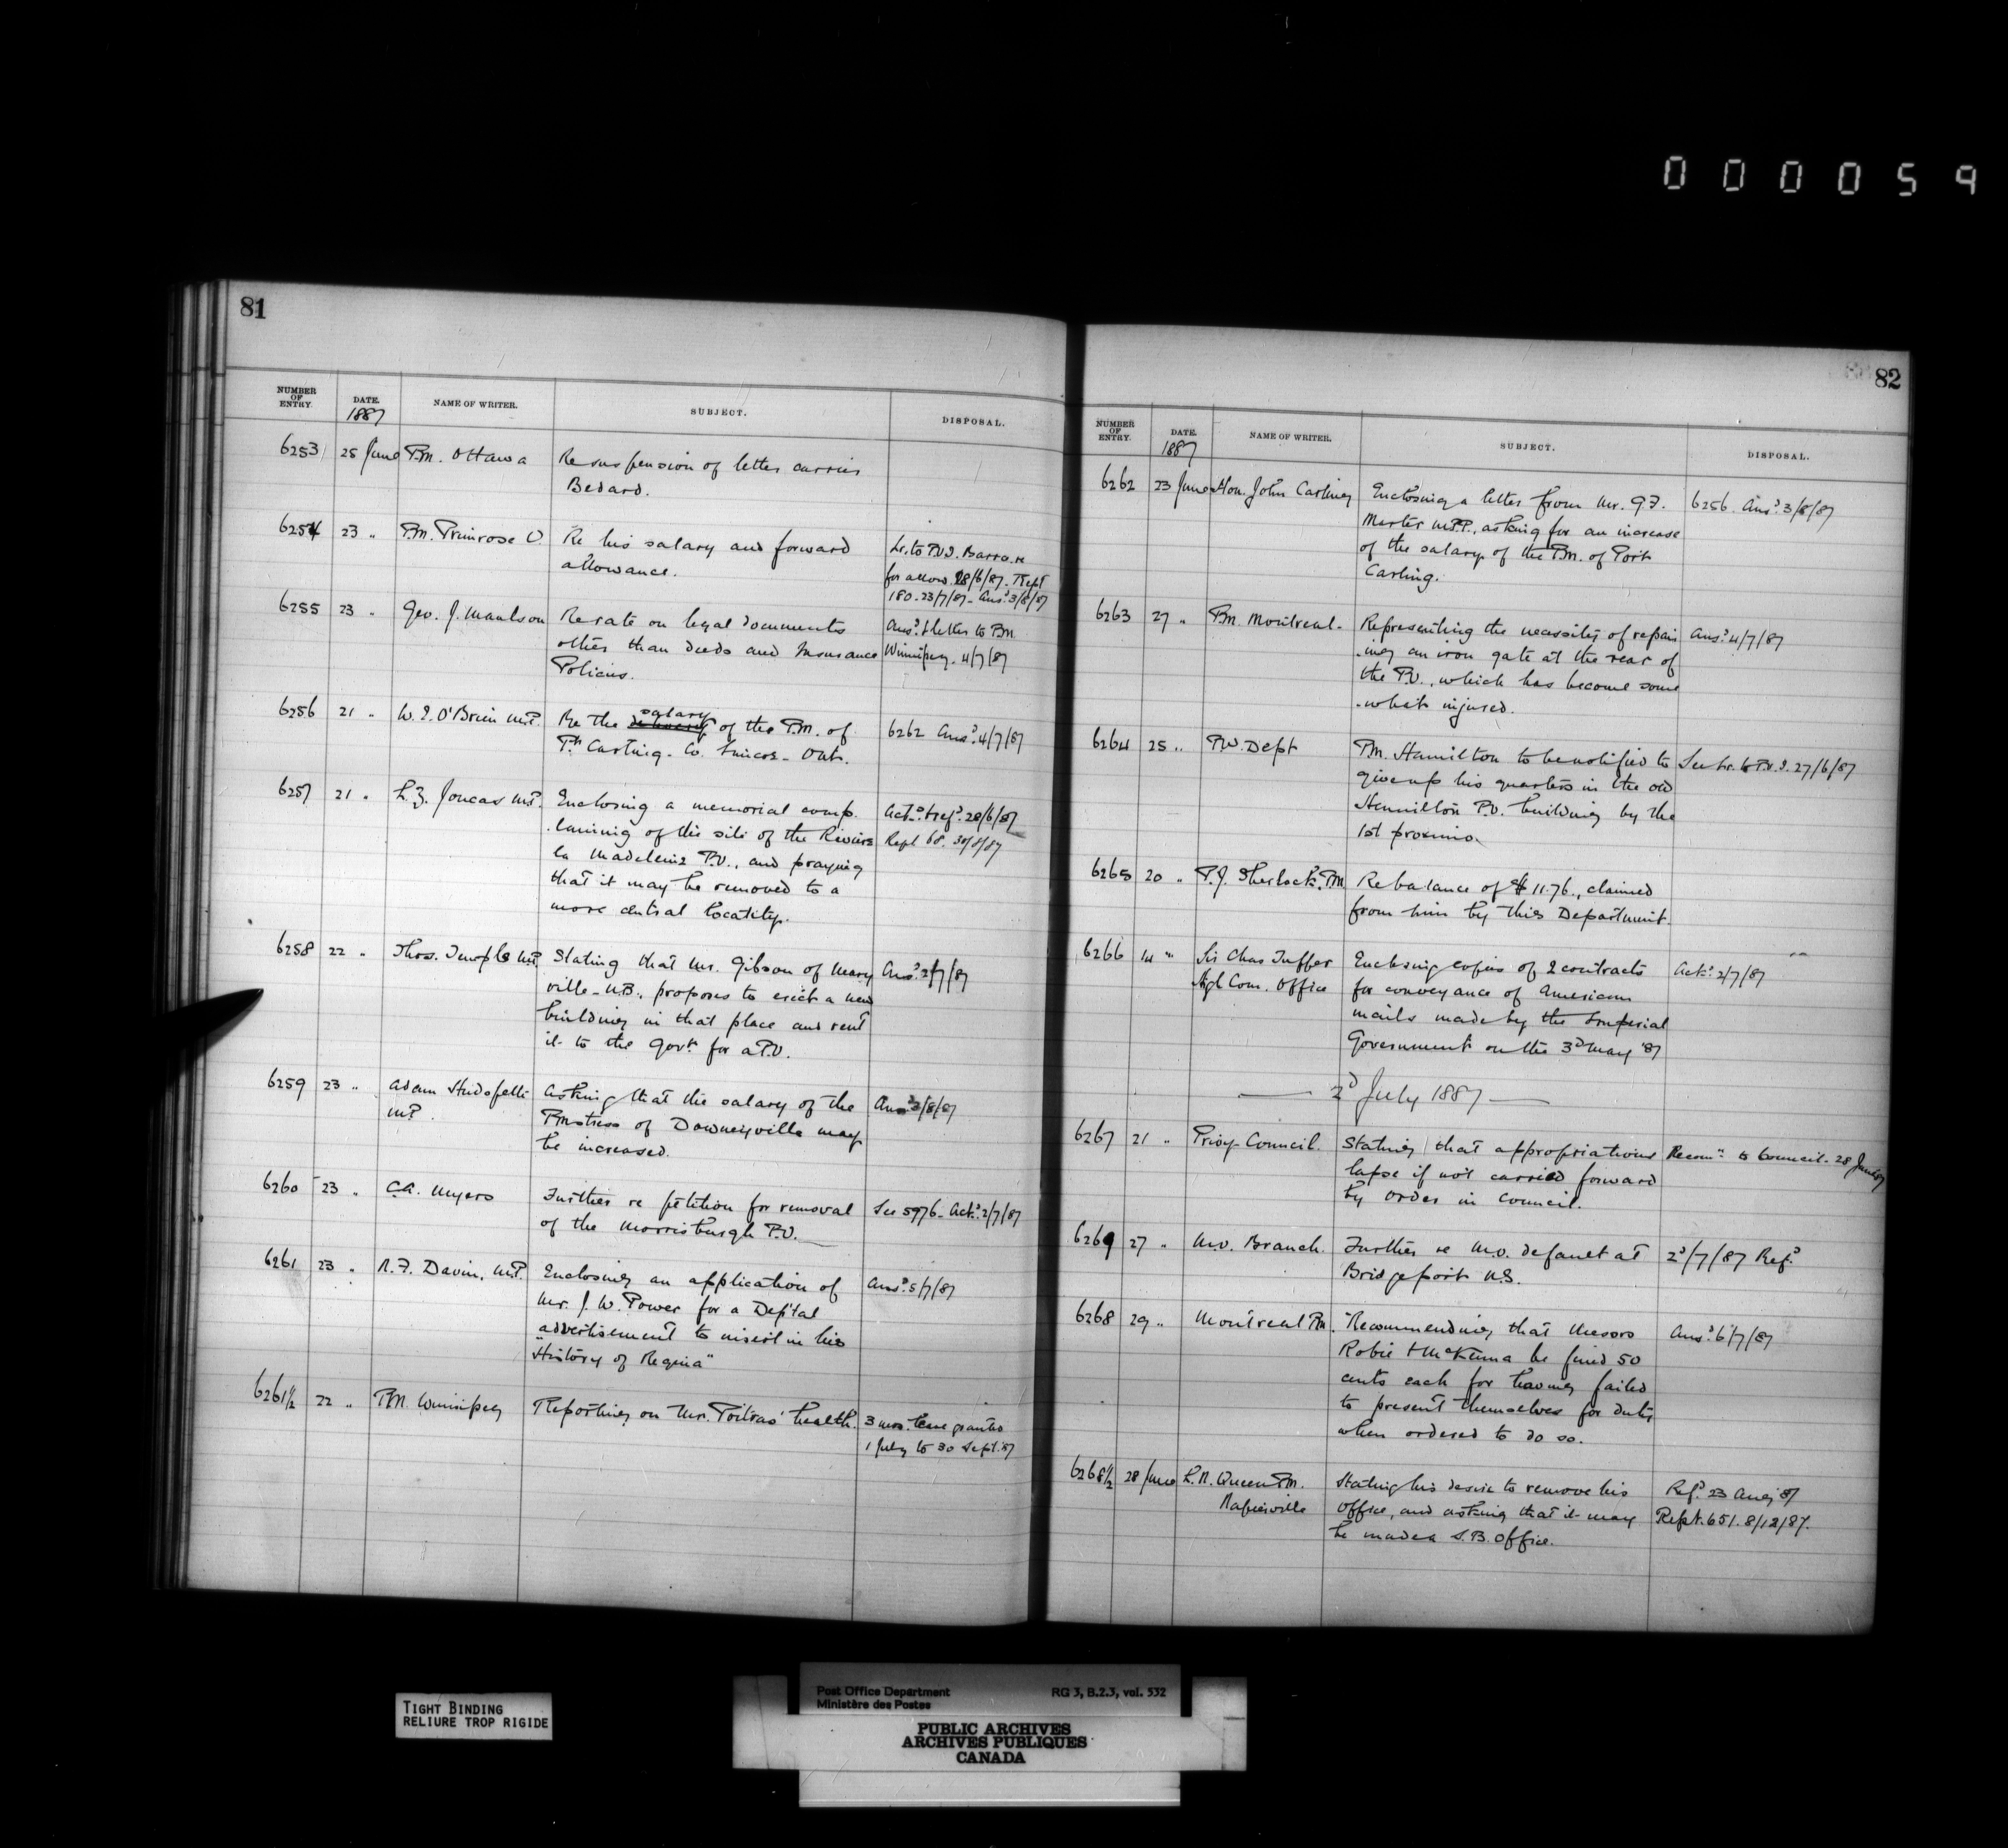 000059
81
NUMBER OF ENTRY. DATE. 1887 NAME OF WRITER. SUBJECT. DISPOSAL.
6253 25 June P.M. Ottawa Re suspension of letter carrier
Bedard.
6254 23 " P.M. Primrose O. Re his salary and forward Lr. to P.O.I. Barrie re
allowance. for allow. 28/6/87. Rept
180. 23/7/87 - Ansd 3/8/87
6255 23 " Geo. J. Maulson Re rate on legal documents Ansd & letter to P.M.
other than deeds and Insurance Winnipeg. 4/7/87
Policies.
6256 21 " W. E. O'Brien M.P. Re the salary of the P.M. of 6262 Ansd 4/7/87
Pt Carling. Co. Simcoe. Ont.
6257 21 " L. Z. Joncas M.P. Enclosing a memorial comp- Ackd & refd 28/6/87
laining of the site of the Riviere Rept 68. 30/8/87
la Madeleine P.O., and praying
that it may be removed to a
more central locality.
6258 22 " Thos. Temple M.P. Stating that Mr. Gibson of Mary Ansd 2/7/87
ville - N.B., proposes to erect a new
building in that place and rent
it to the Govt for a P.O.
6259 23 " Adam Hudspeth Asking that the salary of the Ansd 3/8/87
M.P. Pmstress of Downeyville may
be increased.
6260 23 " C.A. Myers Further re petition for removal See 5976 - Ackd 2/7/87
of the Morrisburgh P.O.
6261 23 " N. F. Davin, M.P. Enclosing an application of Ansd 5/7/87
Mr. J. W. Power for a Deptal
advertisement to insert in his
"History of Regina"
6261½ 22 " P.M. Winnipeg Reporting on Mr. Poitras' health. 3 mos. leave granted
1 July to 30 Sept. '87
82
NUMBER OF ENTRY. DATE. 1887 NAME OF WRITER. SUBJECT. DISPOSAL.
6262 23 June Hon. John Carling Enclosing a letter from Mr. G.F. 6256. Ansd 3/8/87
Marter M.P.P., asking for an increase
of the salary of the P.M. of Port
Carling.
6263 27 " P.M. Montreal. Representing the necessity of repair Ansd 4/7/87
-ing an iron gate at the rear of
the P.O., which has become some
-what injured.
6264 25 " P.W. Dept P.M. Hamilton to be notified to See Lr. to P.O.I. 27/6/87
give up his quarters in the old
Hamilton P.O. building by the
1st proximo.
6265 20 " P.J. Sherlock. P.M. Re balance of $11.76., claimed
from him by this Department.
6266 14 " Sir Chas Tupper Enclosing copies of 2 contracts Ackd 2/7/87
High Com. Office for conveyance of American
mails made by the Imperial
Government on the 3d May '87
2d July 1887
6267 21 " Privy Council. Stating that appropriations Recomn to Council. 28 June/87
lapse if not carried forward
by order in council.
6269 27 " M.O. Branch. Further re M.O. default at 2d/7/87 Refd
Bridgeport N.S.
6268 29 " Montreal P.M. Recommending that Messrs Ansd 6/7/87
Robie & McKenna be fined 50
cents each for having failed
to present themselves for duty
when ordered to do so.
6268½ 28 June L. N. Queen P.M. Stating his desire to remove his Refd 23 Aug '87
Napierville office, and asking that it may Rept. 651. 8/12/87.
be made a S.B. Office.
TIGHT BINDING
RELIURE TROP RIGIDE
Post Office Department RG 3, B.2.3, vol. 532
Ministère des Postes
PUBLIC ARCHIVES
ARCHIVES PUBLIQUES
CANADA